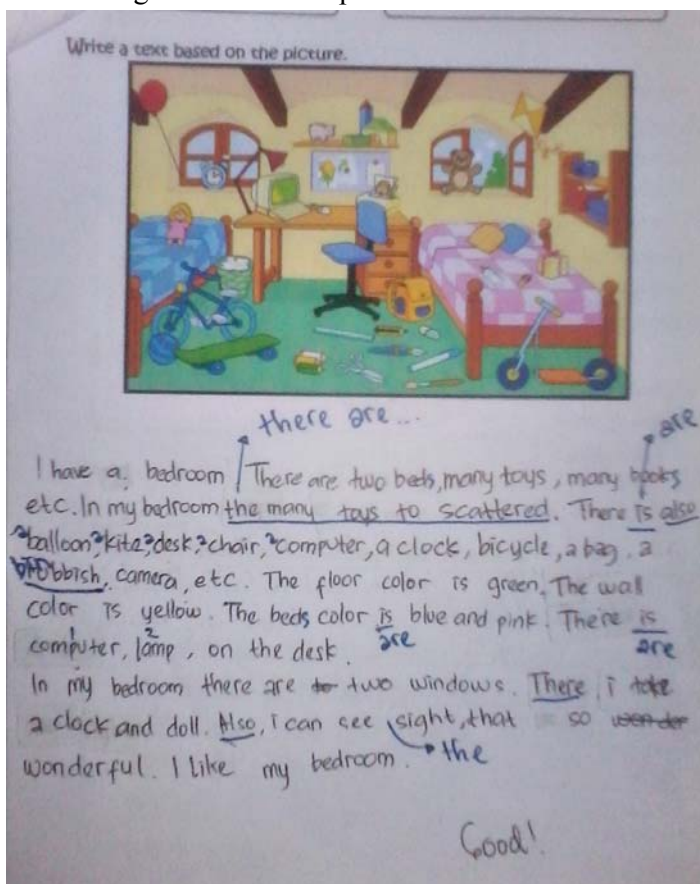 Write a text based on the picture.
there are...
are
I have a bedroom There are two beds, many toys, many books
etc. In my bedroom the many toys to scattered. There is also
a balloon, a kite, a desk, a chair, a computer, a clock, bicycle, a bag, a
camera, etc. The floor color is green. The wall
color is yellow. The beds color is blue and pink. There is
are
are
computer, lamp, on the desk.
In my bedroom there are to two windows. There i take
a clock and doll. Also, i can see sight, that so wonder
wonderful. I like my bedroom.
the
Good!